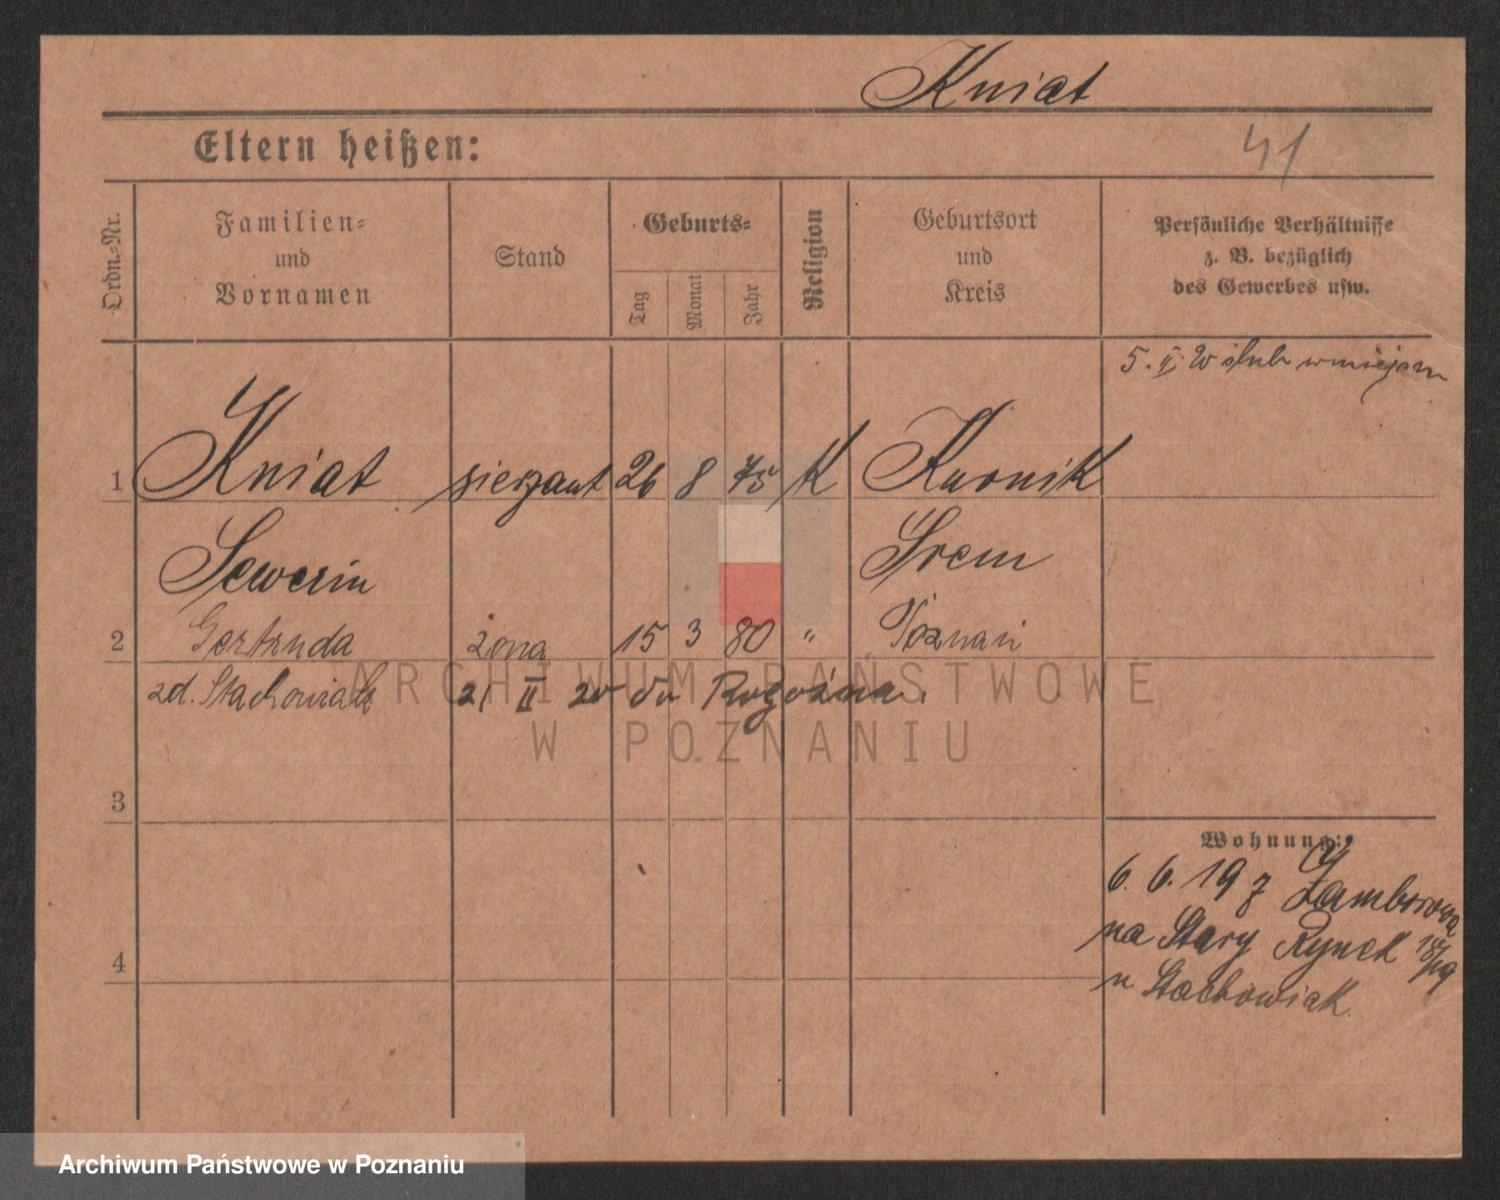 Kniat
Eltern heißen:
41
Ordn.-Nr.
Familien-
und
Vornamen
Stand
Geburts-
Tag
Monat
Jahr
Religion
Geburtsort
und
Kreis
Persönliche Verhältnisse
z. B. bezüglich
des Gewerbes usw.
5. II. 20 ślub w miejscu
1 Kniat sierzant 26 8 75 K Kurnik
Sewerin Śrem
2 Gertruda żona 15 3 80 " Poznań
zd. Stachowiak 21 II 20 do Rogoźna.
ARCHIWUM PAŃSTWOWE
W POZNANIU
3
Wohnung:
6. 6. 19 z Zamborowa
na Stary Rynek 18/19
4
u Stachowiak.
Archiwum Państwowe w Poznaniu